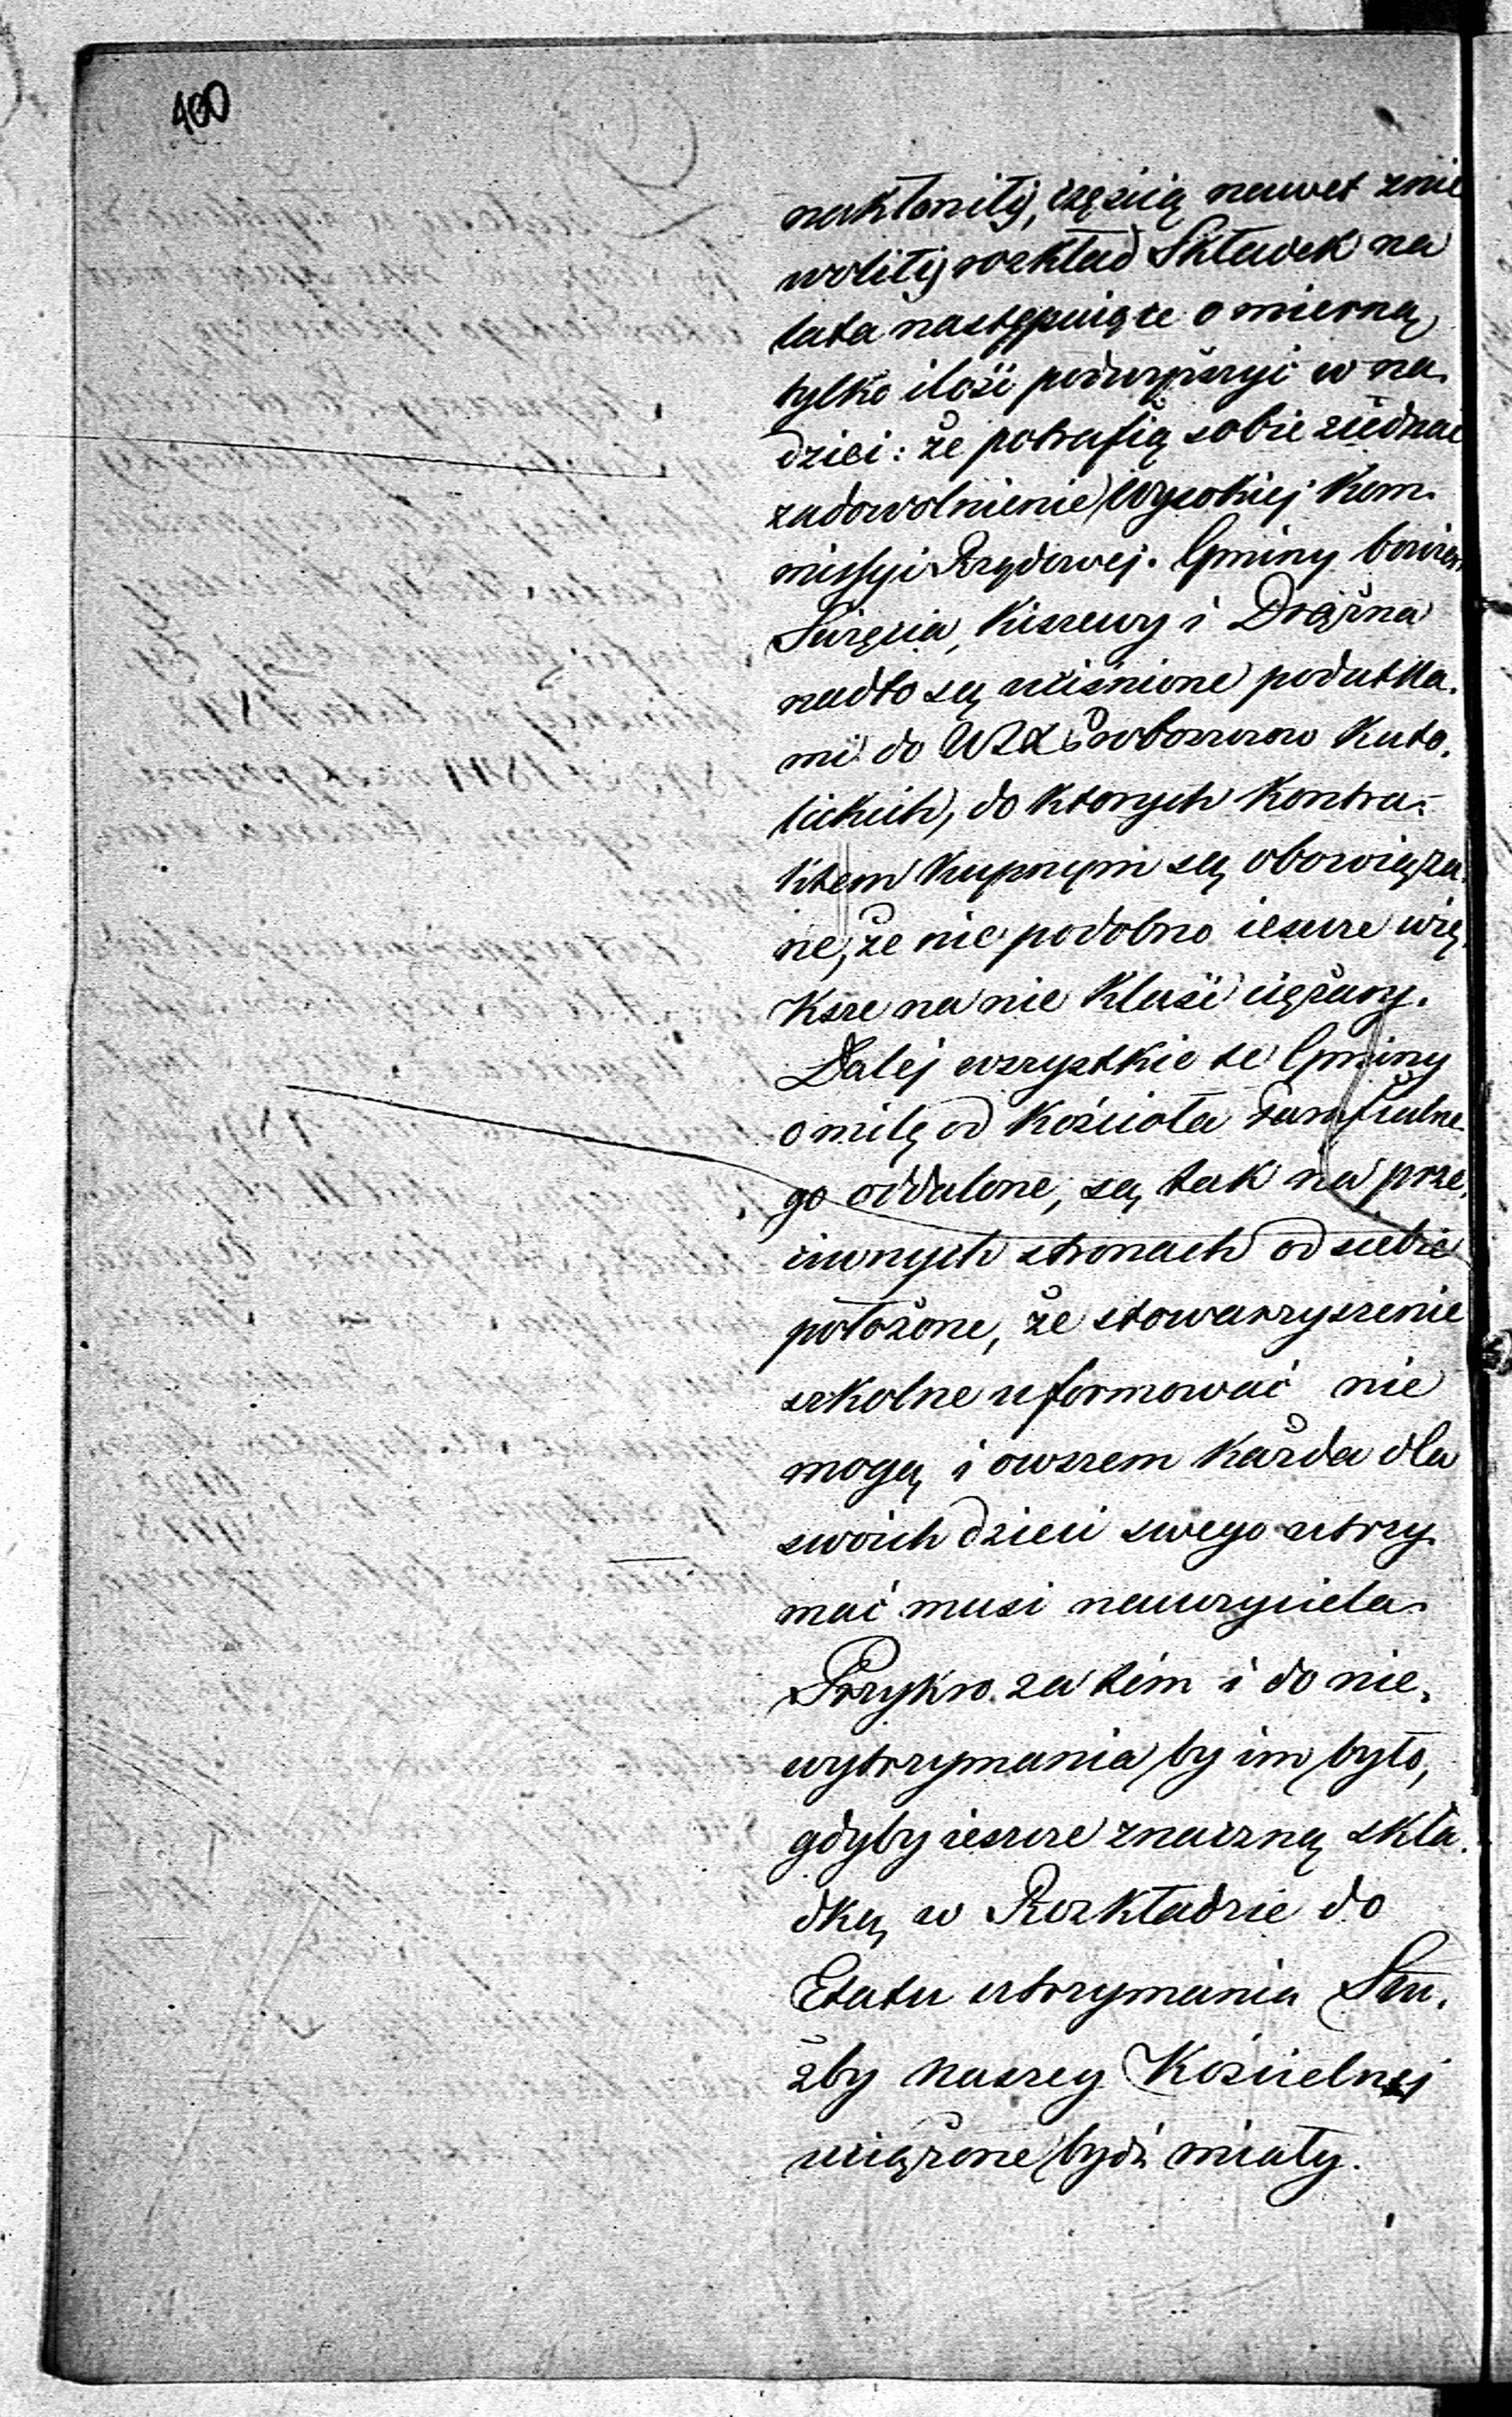 400
nakłoniły, częścią nawet znie
woliły, rozkład Składek na
lata następuiące o mierną
tylko ilość podwyższyć w na.
dziei: że potrafią sobie ziednać
zadowolnienie Wysokiej Kom.
missyi Rządowej. Gminy bowiem
Swięcia, Kiszewy i Drążna
nadto są uciśnione podatka.
mi do WXX Proboszczow Kato.
lickich, do ktorych Kontra-
ktem Kupnym są obowiąza.
ne, że nie podobno ieszcze wię.
Ksze na nie Klaść ciężary.
Dalej wszystkie te Gminy
o milę od Kościoła Parafialne.
go oddalone, są tak na prze.
ciwnych stronach od siebie
położone, że stowarzyszenie
szkolne uformować nie
mogą i owszem Każda dla
swoich dzieci swego utrzy.
mać musi nauczyciela.
Przykro zatém i do nie.
wytrzymania by im było,
gdyby ieszcze znaczną skła.
dką w Rozkładzie do
Etatu utrzymania Słu.
żby naszey Kościelnej
uciążone bydź miały.